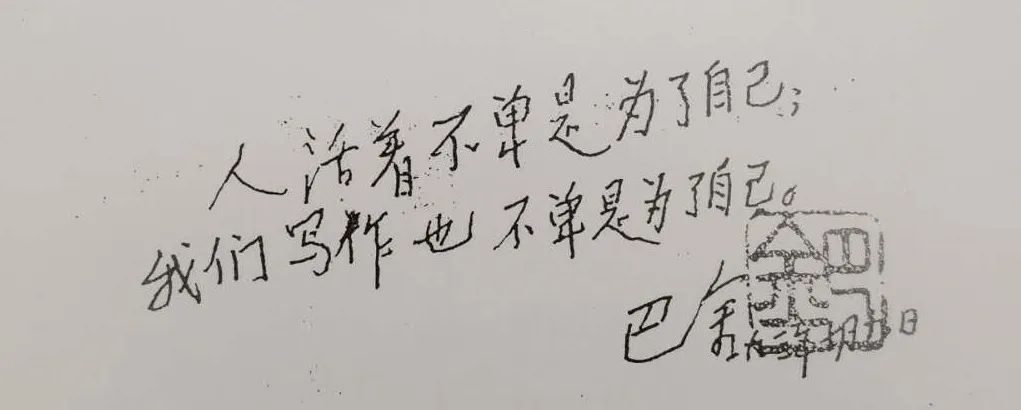 人活着不单是为了自己；
我们写作也不单是为了自己。
巴金